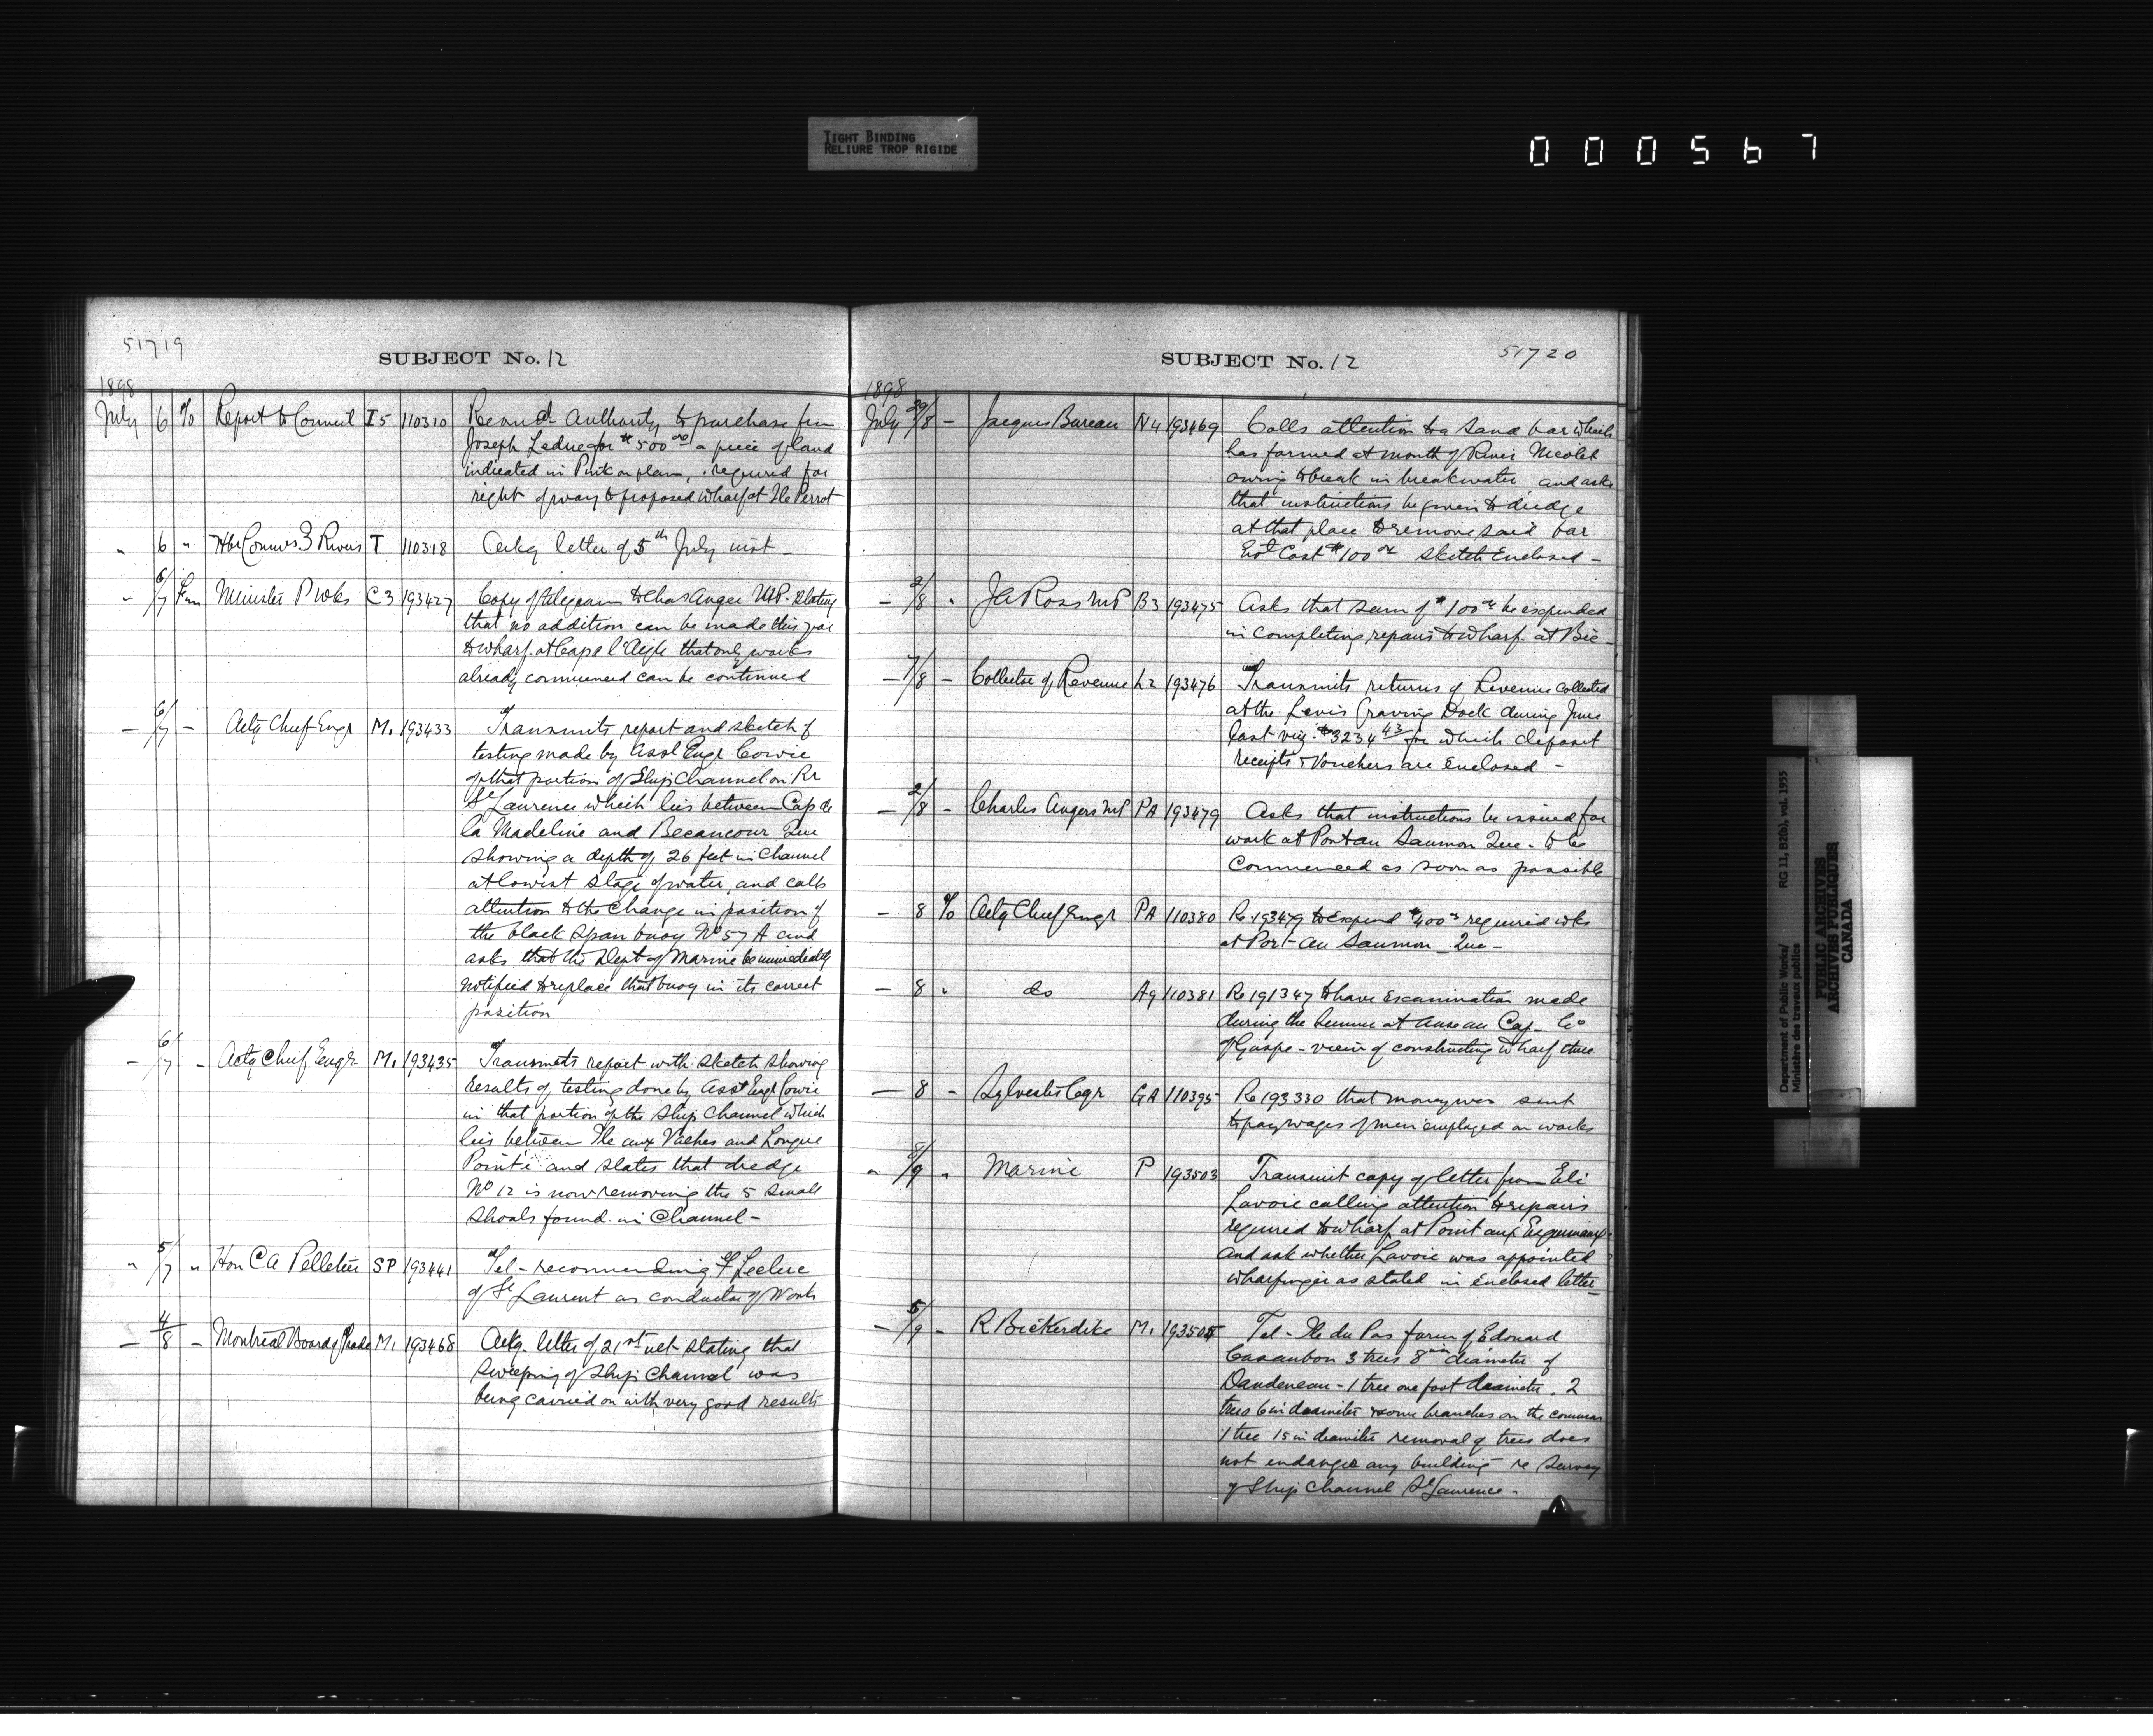 TIGHT BINDING
RELIURE TROP RIGIDE
000567
51719
SUBJECT No. 12
1898
July 6 % Report to Council I5 110310 Recmd. Authority to purchase fm
Joseph Leduc for $500.00 a piece of land
indicated in Pink on plan, required for
right of way to proposed wharf at Ile Perrot
" 6 " Hbr Commrs 3 Rivers T 110318 Ackg letter of 5th July inst -
" 6/7 Fm Minister P Wks C3 193427 Copy of telegram to Chas Anger M.P. stating
that no addition can be made this year
to wharf at Cape l'Aigle that only works
already commenced can be continued
— 6/7 - Actg Chief Engr M1 193433 Transmits report and sketch of
testing made by Asst Engr Cowie
of that portion of Ship Channel on Rr
St Laurence which lies between Cap de
la Madeline and Becancour Que
showing a depth of 26 feet in Channel
at lowest stage of water, and calls
attention to the change in position of
the black spar buoy No 57 A and
asks that the Dept of Marine be immediately
notified to replace that buoy in its correct
position
- 6/7 - Actg Chief Engr M1 193435 Transmits report with sketch showing
results of testing done by Asst Engr Cowie
in that portion of the Ship Channel which
lies between Ile aux Vaches and Longue
Pointe and states that dredge
No 12 is now removing the 5 small
shoals found in Channel -
" 5/7 " Hon C A Pelletier SP 193441 Tel - recommending F Leclerc
of St Laurent as conductor of Works
— 4/8 - Montreal Board of Trade M1 193468 Ackg. letter of 21st ult stating that
sweeping of Ship Channel was
being carried on with very good results
SUBJECT No. 12
51720
1898
July 29/8 - Jacques Bureau N4 193469 Calls attention to a sand bar which
has formed at mouth of River Nicolet
owing to break in breakwater and asks
that instructions be given to dredge
at that place to remove said bar
Est Cost $100.00 sketch Enclosed -
- 2/8 " J A Ross MP B3 193475 Asks that sum of $100.00 be expended
in completing repairs to wharf at Bic -
- 7/8 - Collector of Revenue L2 193476 Transmits returns of Revenue collected
at the Levis Graving Dock during June
last viz: $3234.43 for which deposit
receipts & Vouchers are Enclosed -
- 2/8 - Charles Angers MP PA 193479 Asks that instructions be issued for
work at Port au Saumon Que - to be
Commenced as soon as possible
- 8 % Actg Chief Engr PA 110380 Re 193479 to Expend $400.00 required wks
at Port au Saumon Que -
- 8 " do Ag 110381 Re 191347 to have Examination made
during the Summer at Anse au Cap - Co
of Gaspe - view of constructing wharf there
— 8 - Sylvester Engr GA 110395 Re 193330 that money was sent
to pay wages of men employed on works
" 8/9 " Marine P 193503 Transmit copy of letter from Eli
Lavoie calling attention to repairs
required to wharf at Point aux Esquimaux
and ask whether Lavoie was appointed
wharfinger as stated in Enclosed letter -
- 5/9 - R Bickerdike M1 Tel - Ile du Pas farm of Edouard
Casaubon 3 trees 8 in diameter of
Dandeneau - 1 tree one foot diameter. 2
trees 6 in diameter & some branches on the common
1 tree 15 in diameter removal of trees does
not endanger any building re Survey
of Ship Channel St Laurence -
Department of Public Works/
Ministère des travaux publics
RG 11, B2(b), vol. 1955
PUBLIC ARCHIVES
ARCHIVES PUBLIQUES
CANADA